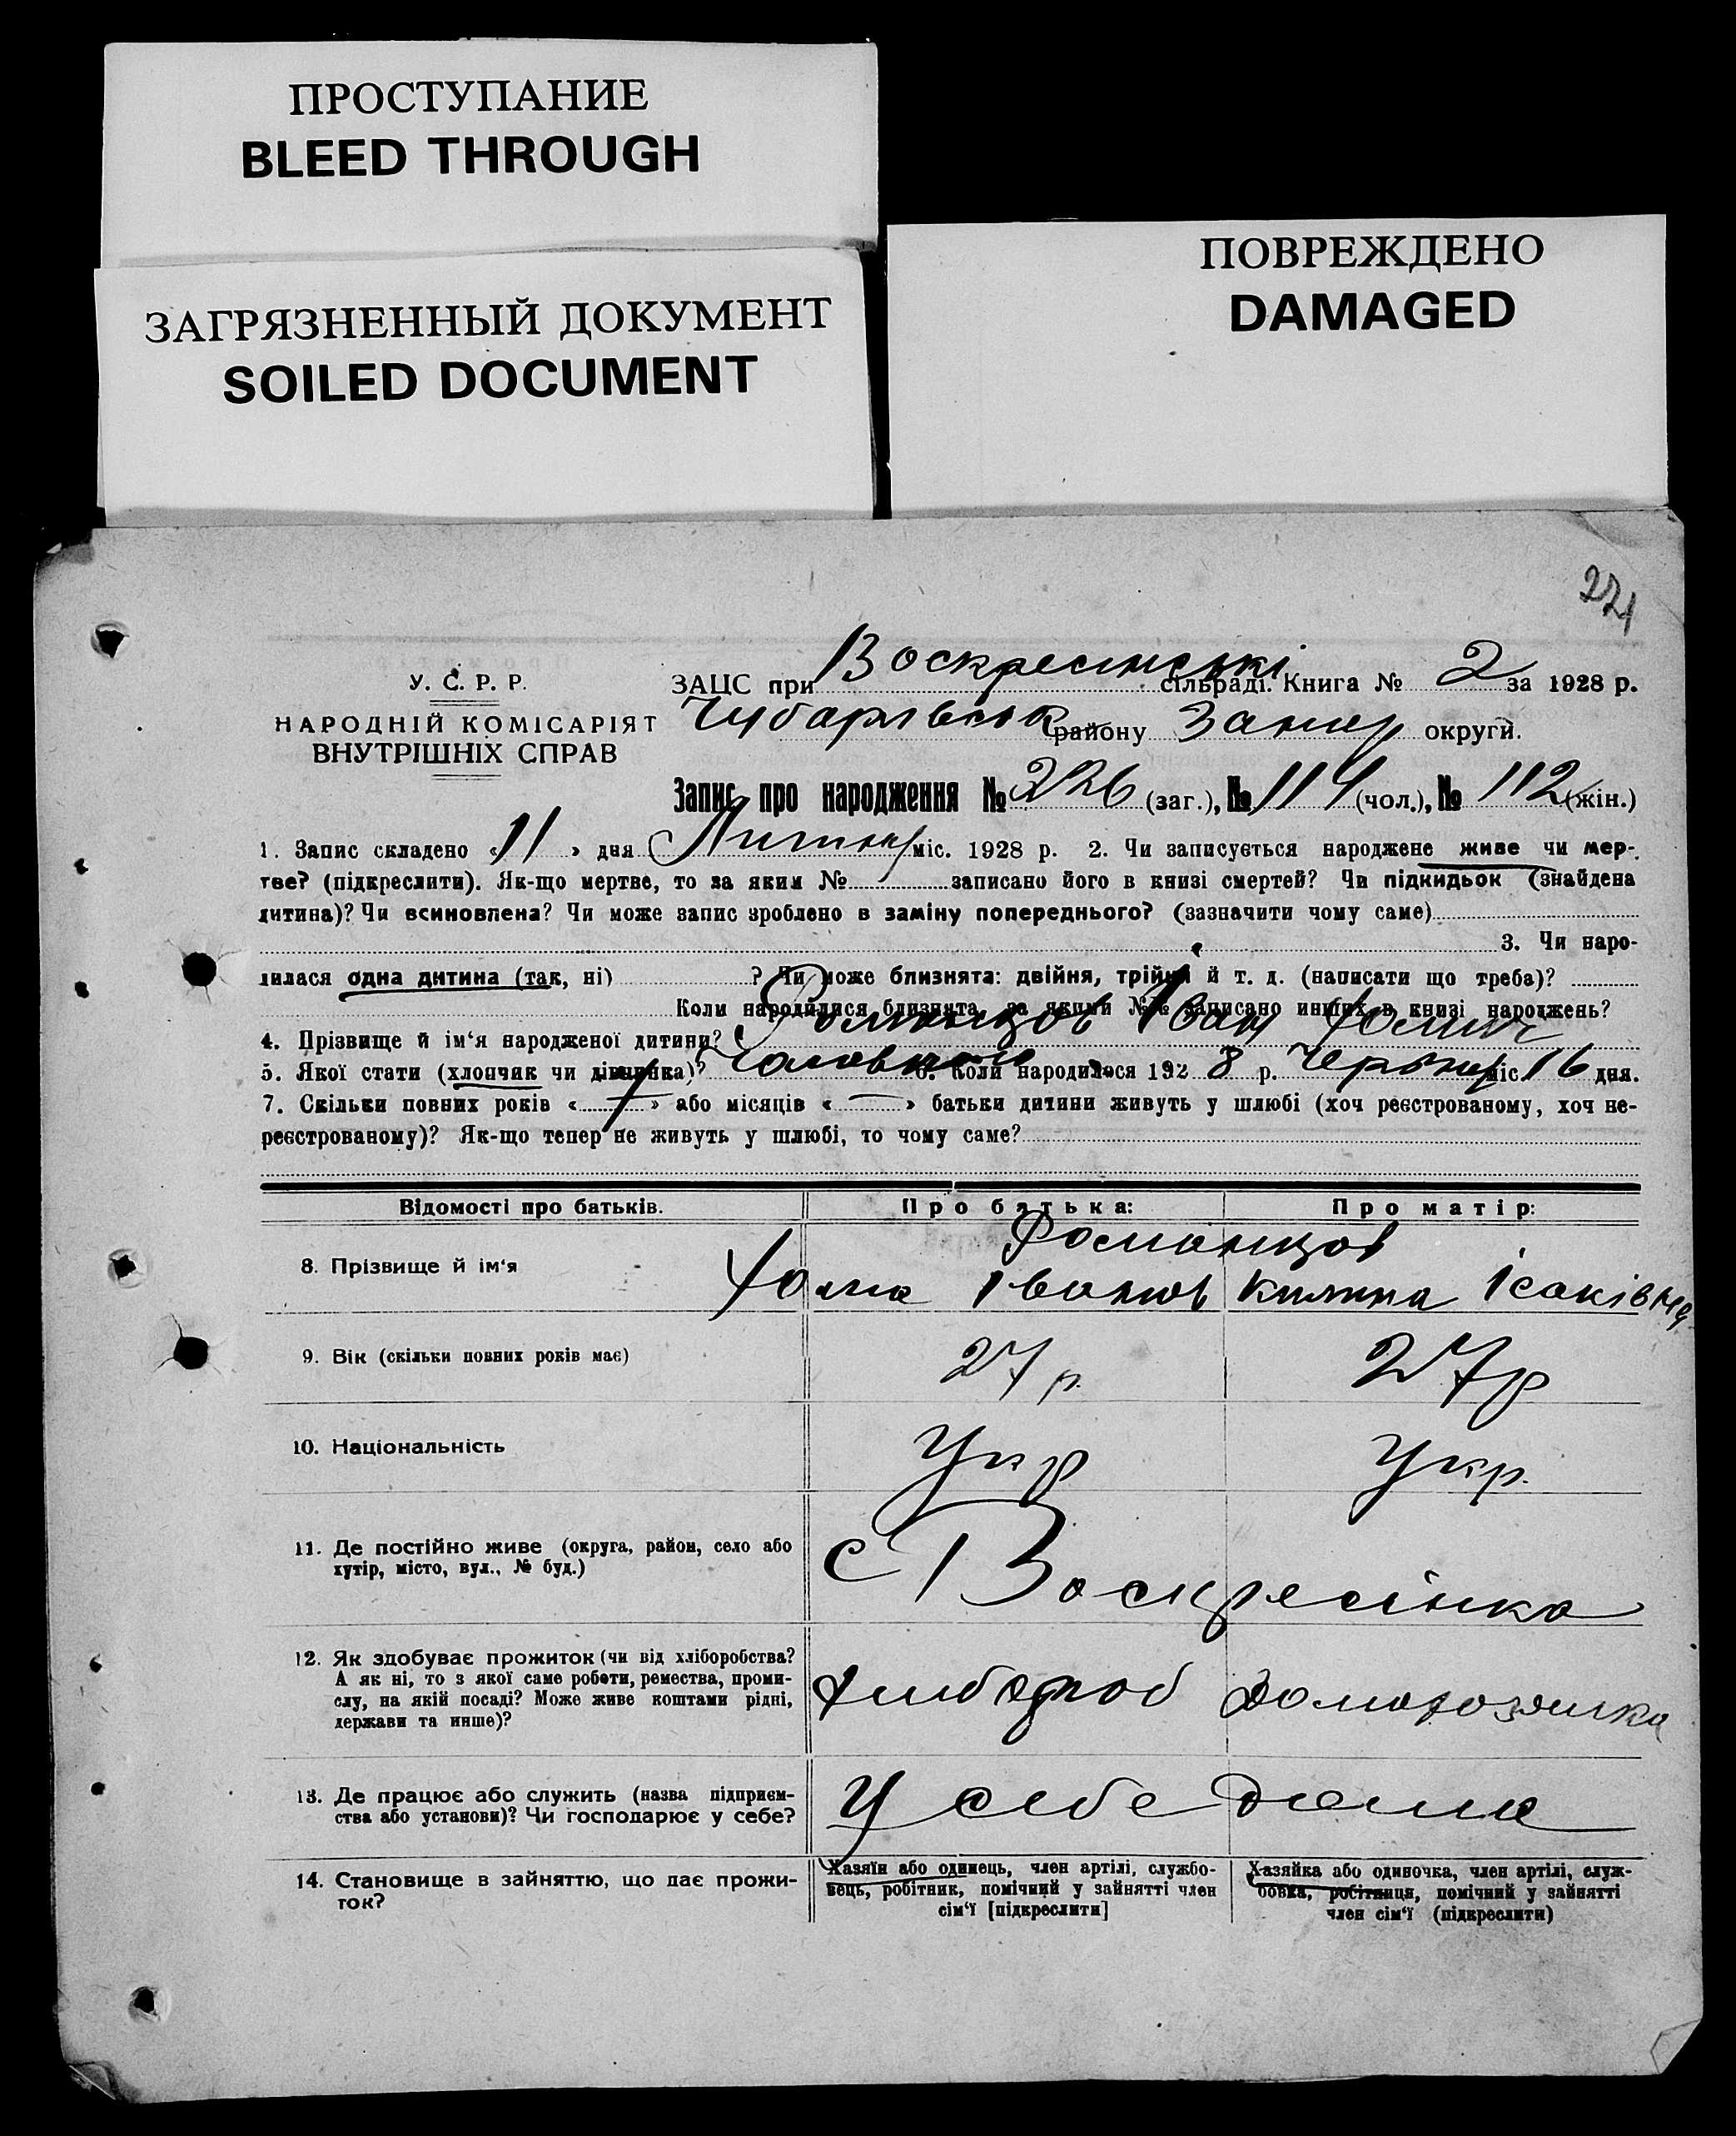 ПРОСТУПАНИЕ
BLEED THROUGH
ЗАГРЯЗНЕННЫЙ ДОКУМЕНТ
SOILED DOCUMENT
ПОВРЕЖДЕНО
DAMAGED
221
У. С. Р. Р.
НАРОДНІЙ КОМІСАРІЯТ
ВНУТРІШНІХ СПРАВ
ЗАЦС при Воскресинські сільраді. Книга № 2 за 1928 р.
Чубарівськ району Запор округи.
Запис про народження № 226 (заг.), № 114 (чол.), № 112 (жін.)
1. Запис складено «11» дня Липня міс. 1928 р. 2. Чи записується народжене живе чи мер-
тве? (підкреслити). Як-що мертве, то за яким № записано його в книзі смертей? Чи підкидьок (знайдена
дитина)? Чи всиновлена? Чи може запис зроблено в заміну попереднього? (зазначити чому саме)
3. Чи наро-
дилася одна дитина (так, ні) ? Чи може близнята: двійня, трійня й т. д. (написати що треба)?
Коли народилися близнята, за якими №№ записано инших в книзі народжень?
4. Прізвище й ім‘я народженої дитини? Романцов Іван Хомич
5. Якої стати (хлопчик чи дівчинка)? Чоловічої 6. Коли народилося 1928 р. Червня міс. 16 дня.
7. Скільки повних років «7» або місяців «—» батьки дитини живуть у шлюбі (хоч реєстрованому, хоч не-
реєстрованому)? Як-що тепер не живуть у шлюбі, то чому саме?
Відомості про батьків. Про батька: Про матір:
Романцов
8. Прізвище й ім‘я Хома Іванов Килина Ісаківна
9. Вік (скільки повних років має) 27 р. 27 р
10. Національність Укр Укр.
11. Де постійно живе (округа, район, село або
хутір, місто, вул., № буд.) с Воскресінка
12. Як здобуває прожиток (чи від хліборобства?
А як ні, то з якої саме роботи, ремества, проми-
слу, на якій посаді? Може живе коштами рідні,
держави та инше)? Хлібороб Домохозяйка
13. Де працює або служить (назва підприєм-
ства або установи)? Чи господарює у себе? У себе дома
14. Становище в зайняттю, що дає прожи-
ток?
Хазяїн або одинець, член артілі, службо-
вець, робітник, помічний у зайнятті член
сім‘ї [підкреслити]
Хазяйка або одиночка, член артілі, служ-
бовка, робітниця, помічний у зайнятті
член сім‘ї (підкреслити)